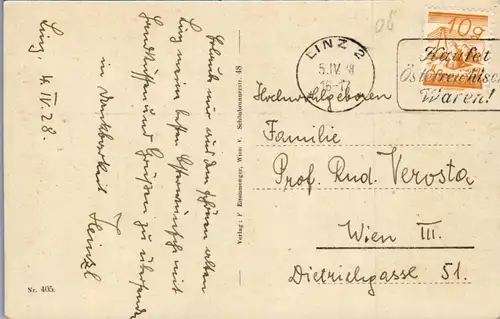 Erlaube mir aus dem schönen alten
Linz meine besten Osterwünsche mit
Handküssen und Grüßen zu übersenden
in Dankbarkeit
Heinzl
Linz, 4. IV. 28.
Nr. 405.
Verlag: F. Wien V. Schönbrunnerstr. 48
LINZ 2
5.IV.
Kaufet
Österreichische
Waren!
10g
Hochwohlgeboren
Familie
Prof. Rud. Verosta
Wien III.
Dietrichgasse 51.
06